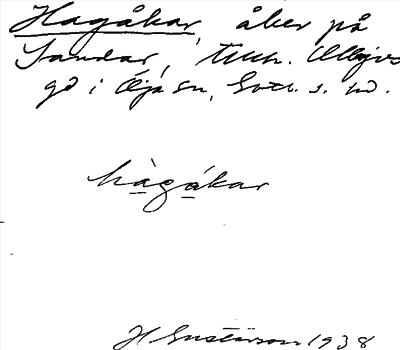 Hagåkar, åker på
Sandar, tillh. Alby
gd i Öja sn, Gotl. s. hd.
hàgákar
H Gustavson 1938